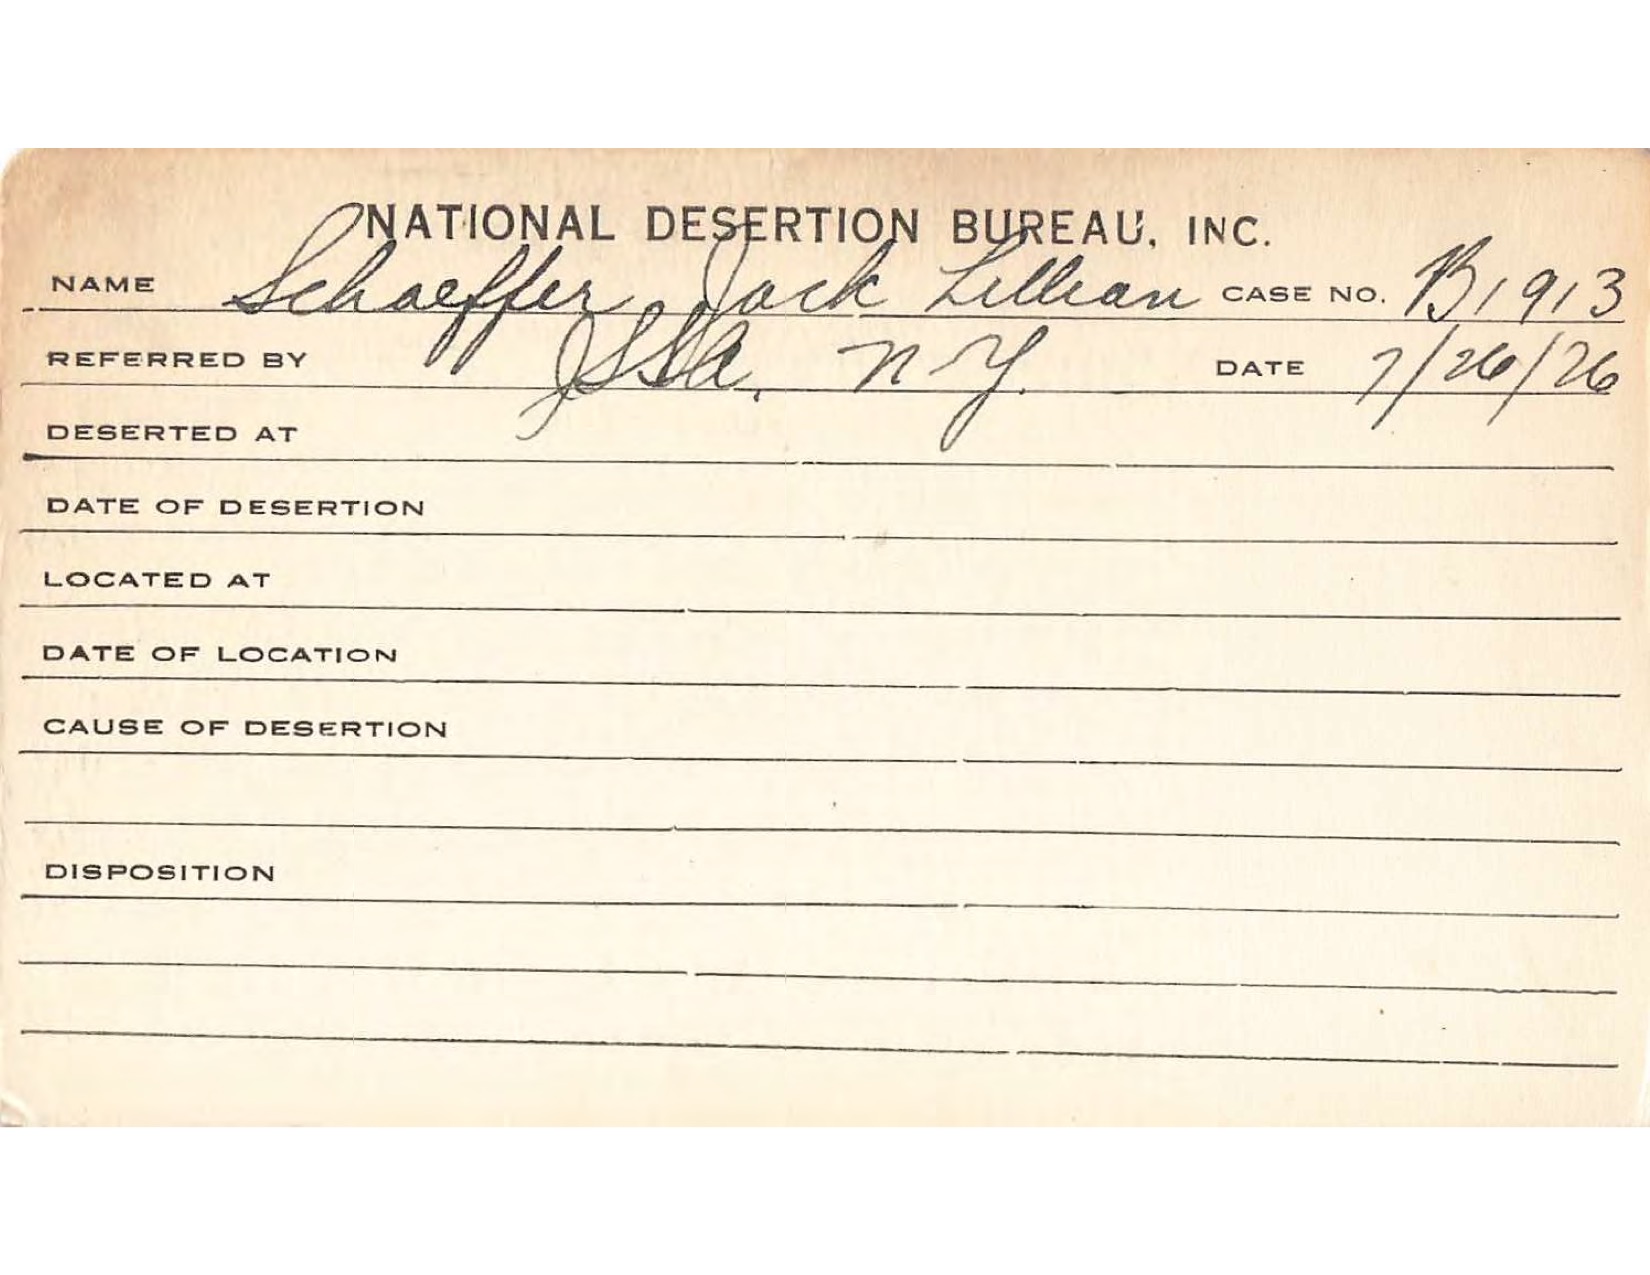 NATIONAL DESERTION BUREAU, INC.
NAME Schaeffer Jack Lillian CASE NO. B1913
REFERRED BY JSSA, N.Y. DATE 7/26/26
DESERTED AT
DATE OF DESERTION
LOCATED AT
DATE OF LOCATION
CAUSE OF DESERTION
DISPOSITION